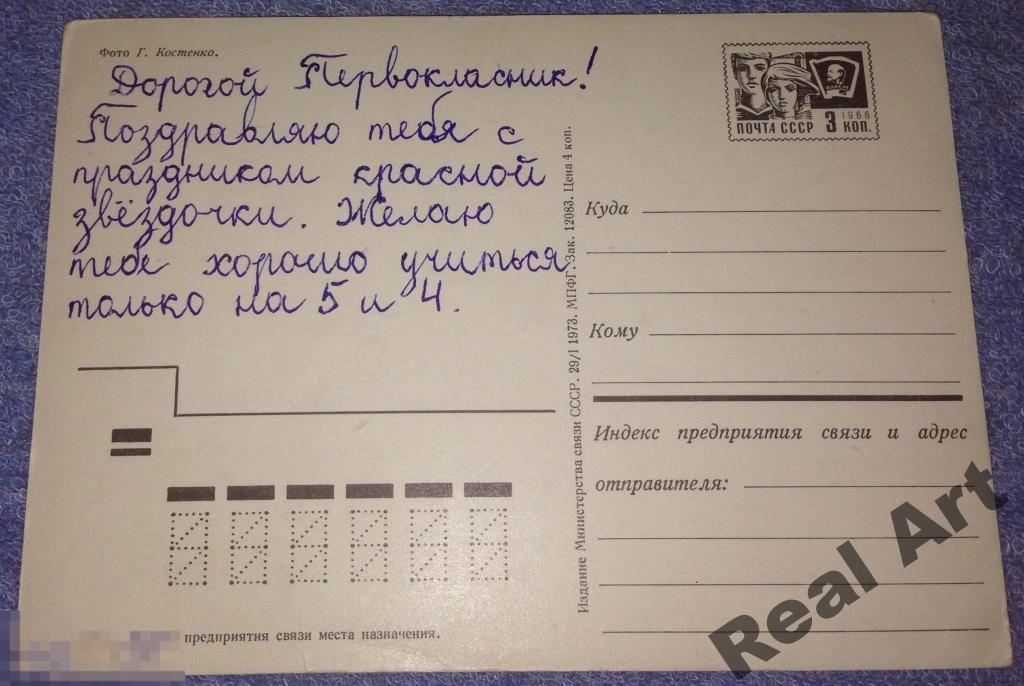 Фото Г. Костенко.
Дорогой Первокласник!
Поздравляю тебя с
праздником красной
звёздочки. Желаю
тебе хорошо учиться
только на 5 и 4.
ВЛКСМ
1966
ПОЧТА СССР 3 КОП.
Издание Министерства связи СССР. 29/I 1973. МПФГ. Зак. 12083. Цена 4 коп.
Куда
Кому
Индекс предприятия связи и адрес
отправителя:
предприятия связи места назначения.
Real Art